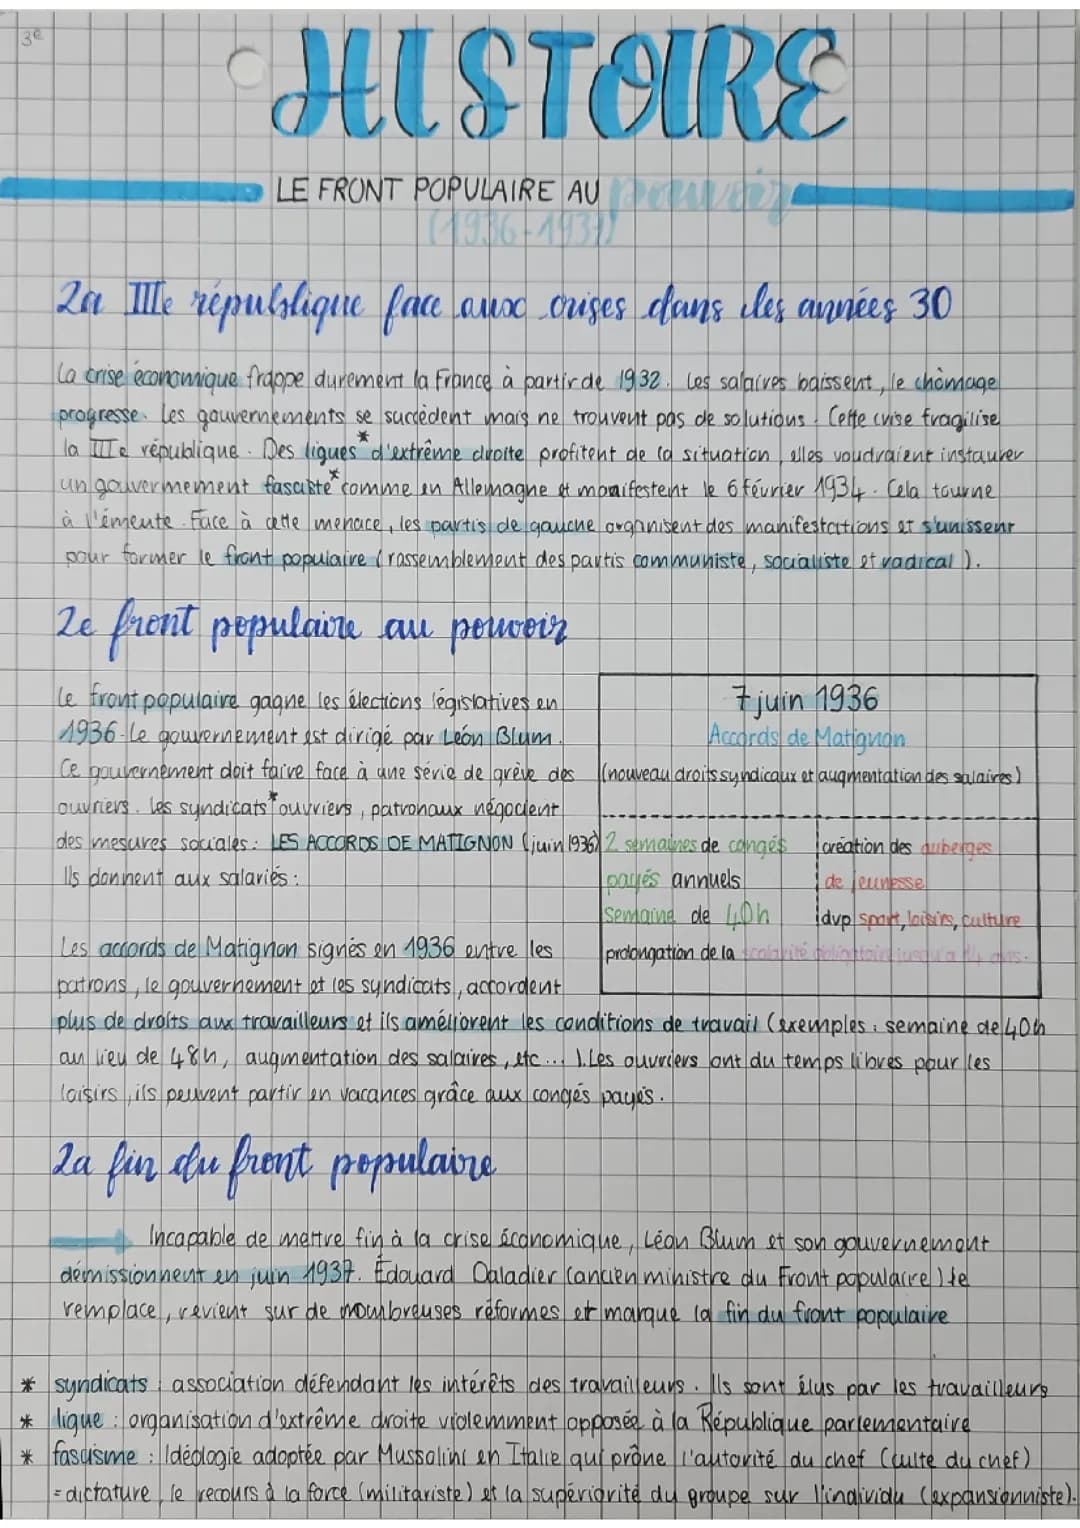 3e
HISTOIRE
LE FRONT POPULAIRE AU pouvoir
(1936-1937)
La IIIe république face aux crises dans les années 30
La crise économique frappe durement la France à partir de 1932. Les salaires baissent, le chômage
progresse. Les gouvernements se succèdent mais ne trouvent pas de solutions. Cette crise fragilise
la IIIe république. Des ligues* d'extrême droite profitent de la situation, elles voudraient instaurer
un gouvernement fasciste* comme en Allemagne et manifestent le 6 février 1934. Cela tourne
à l'émeute. Face à cette menace, les partis de gauche organisent des manifestations et s'unissent
pour former le front populaire (rassemblement des partis communiste, socialiste et radical).
Le front populaire au pouvoir
Le front populaire gagne les élections législatives en
1936. Le gouvernement est dirigé par Léon Blum.
Ce gouvernement doit faire face à une série de grève des
ouvriers. Les syndicats* ouvriers, patronaux négocient
des mesures sociales : LES ACCORDS DE MATIGNON (juin 1936)
Ils donnent aux salariés :
7 juin 1936
Accords de Matignon
(nouveau droits syndicaux et augmentation des salaires)
2 semaines de congés
payés annuels
Semaine de 40h
création des auberges
de jeunesse
dvp sport, loisirs, culture
prolongation de la scolarité obligatoire jusqu'à 14 ans.
Les accords de Matignon signés en 1936 entre les
patrons, le gouvernement et les syndicats, accordent
plus de droits aux travailleurs et ils améliorent les conditions de travail (exemples : semaine de 40h
au lieu de 48h, augmentation des salaires, etc...). Les ouvriers ont du temps libres pour les
loisirs, ils peuvent partir en vacances grâce aux congés payés.
La fin du front populaire
Incapable de mettre fin à la crise économique, Léon Blum et son gouvernement
démissionnent en juin 1937. Édouard Daladier (ancien ministre du Front populaire) le
remplace, revient sur de nombreuses réformes et marque la fin du front populaire
* syndicats : association défendant les intérêts des travailleurs. Ils sont élus par les travailleurs
* ligue : organisation d'extrême droite violemment opposée à la République parlementaire
* fascisme : Idéologie adoptée par Mussolini en Italie qui prône l'autorité du chef (culte du chef)
= dictature, le recours à la force (militariste) et la supériorité du groupe sur l'individu (expansionniste).